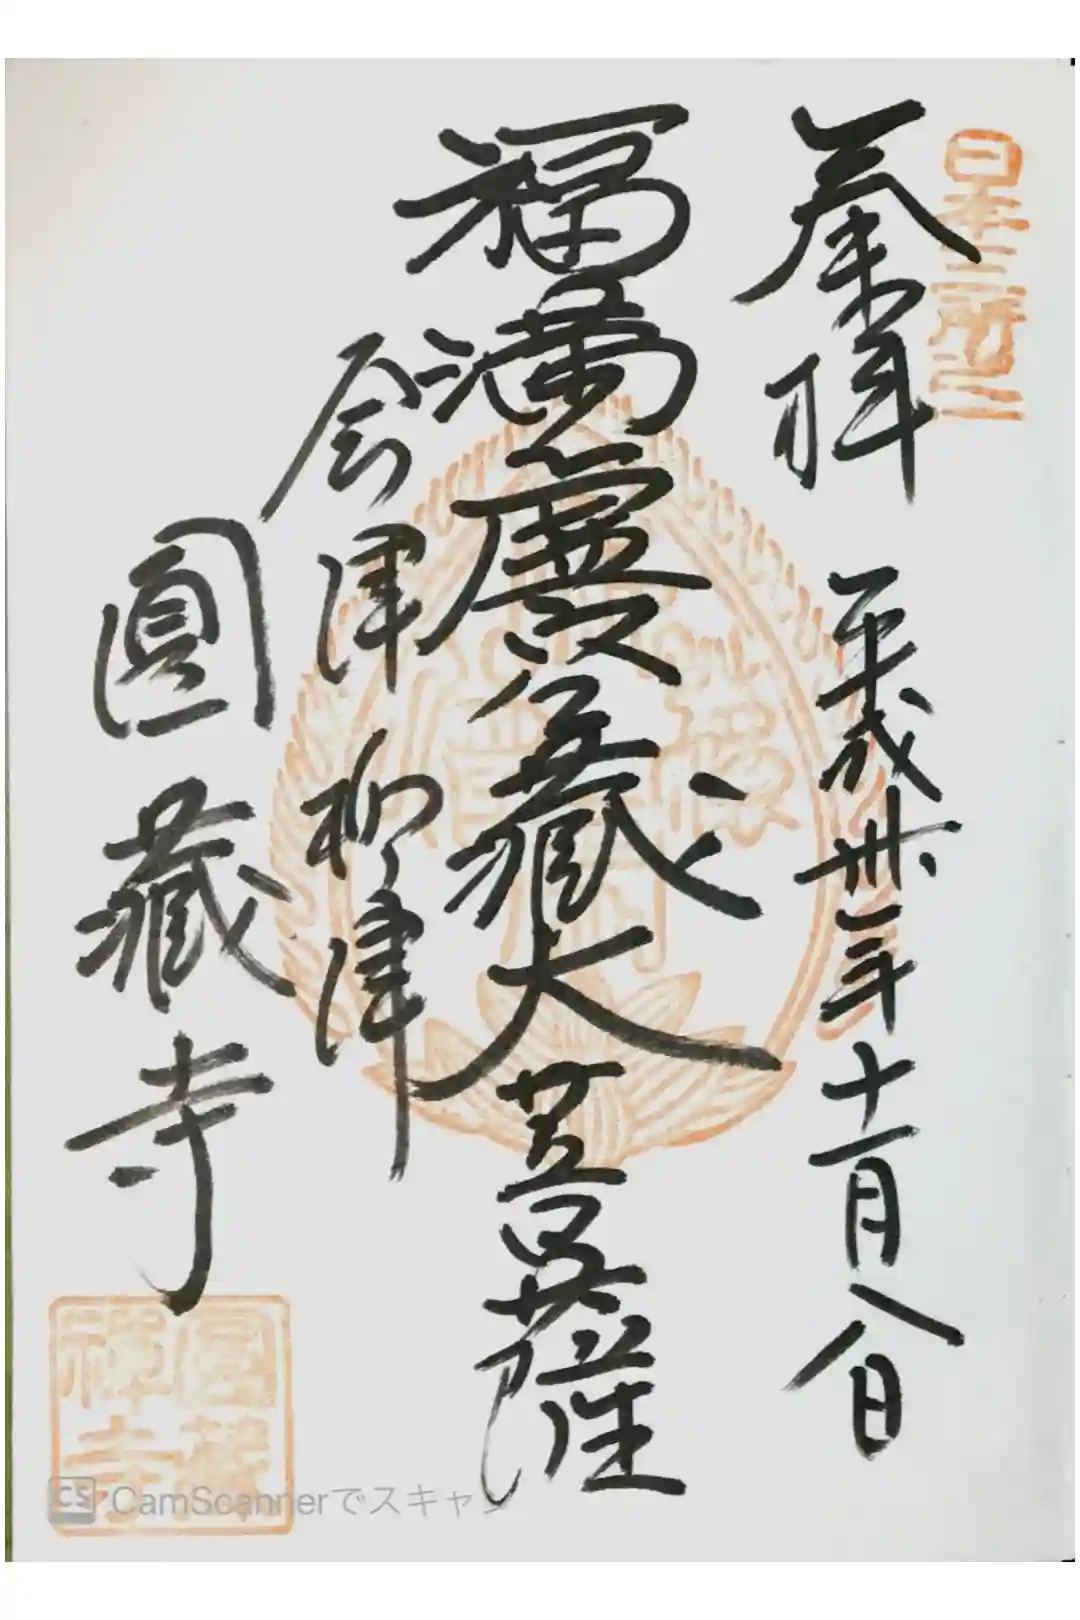 日本三所之一
奉拝 平成卅年十一月八日
福満虚空藏大菩薩
会津柳津
圓藏寺
圓藏
禅寺
CS CamScannerでスキャン